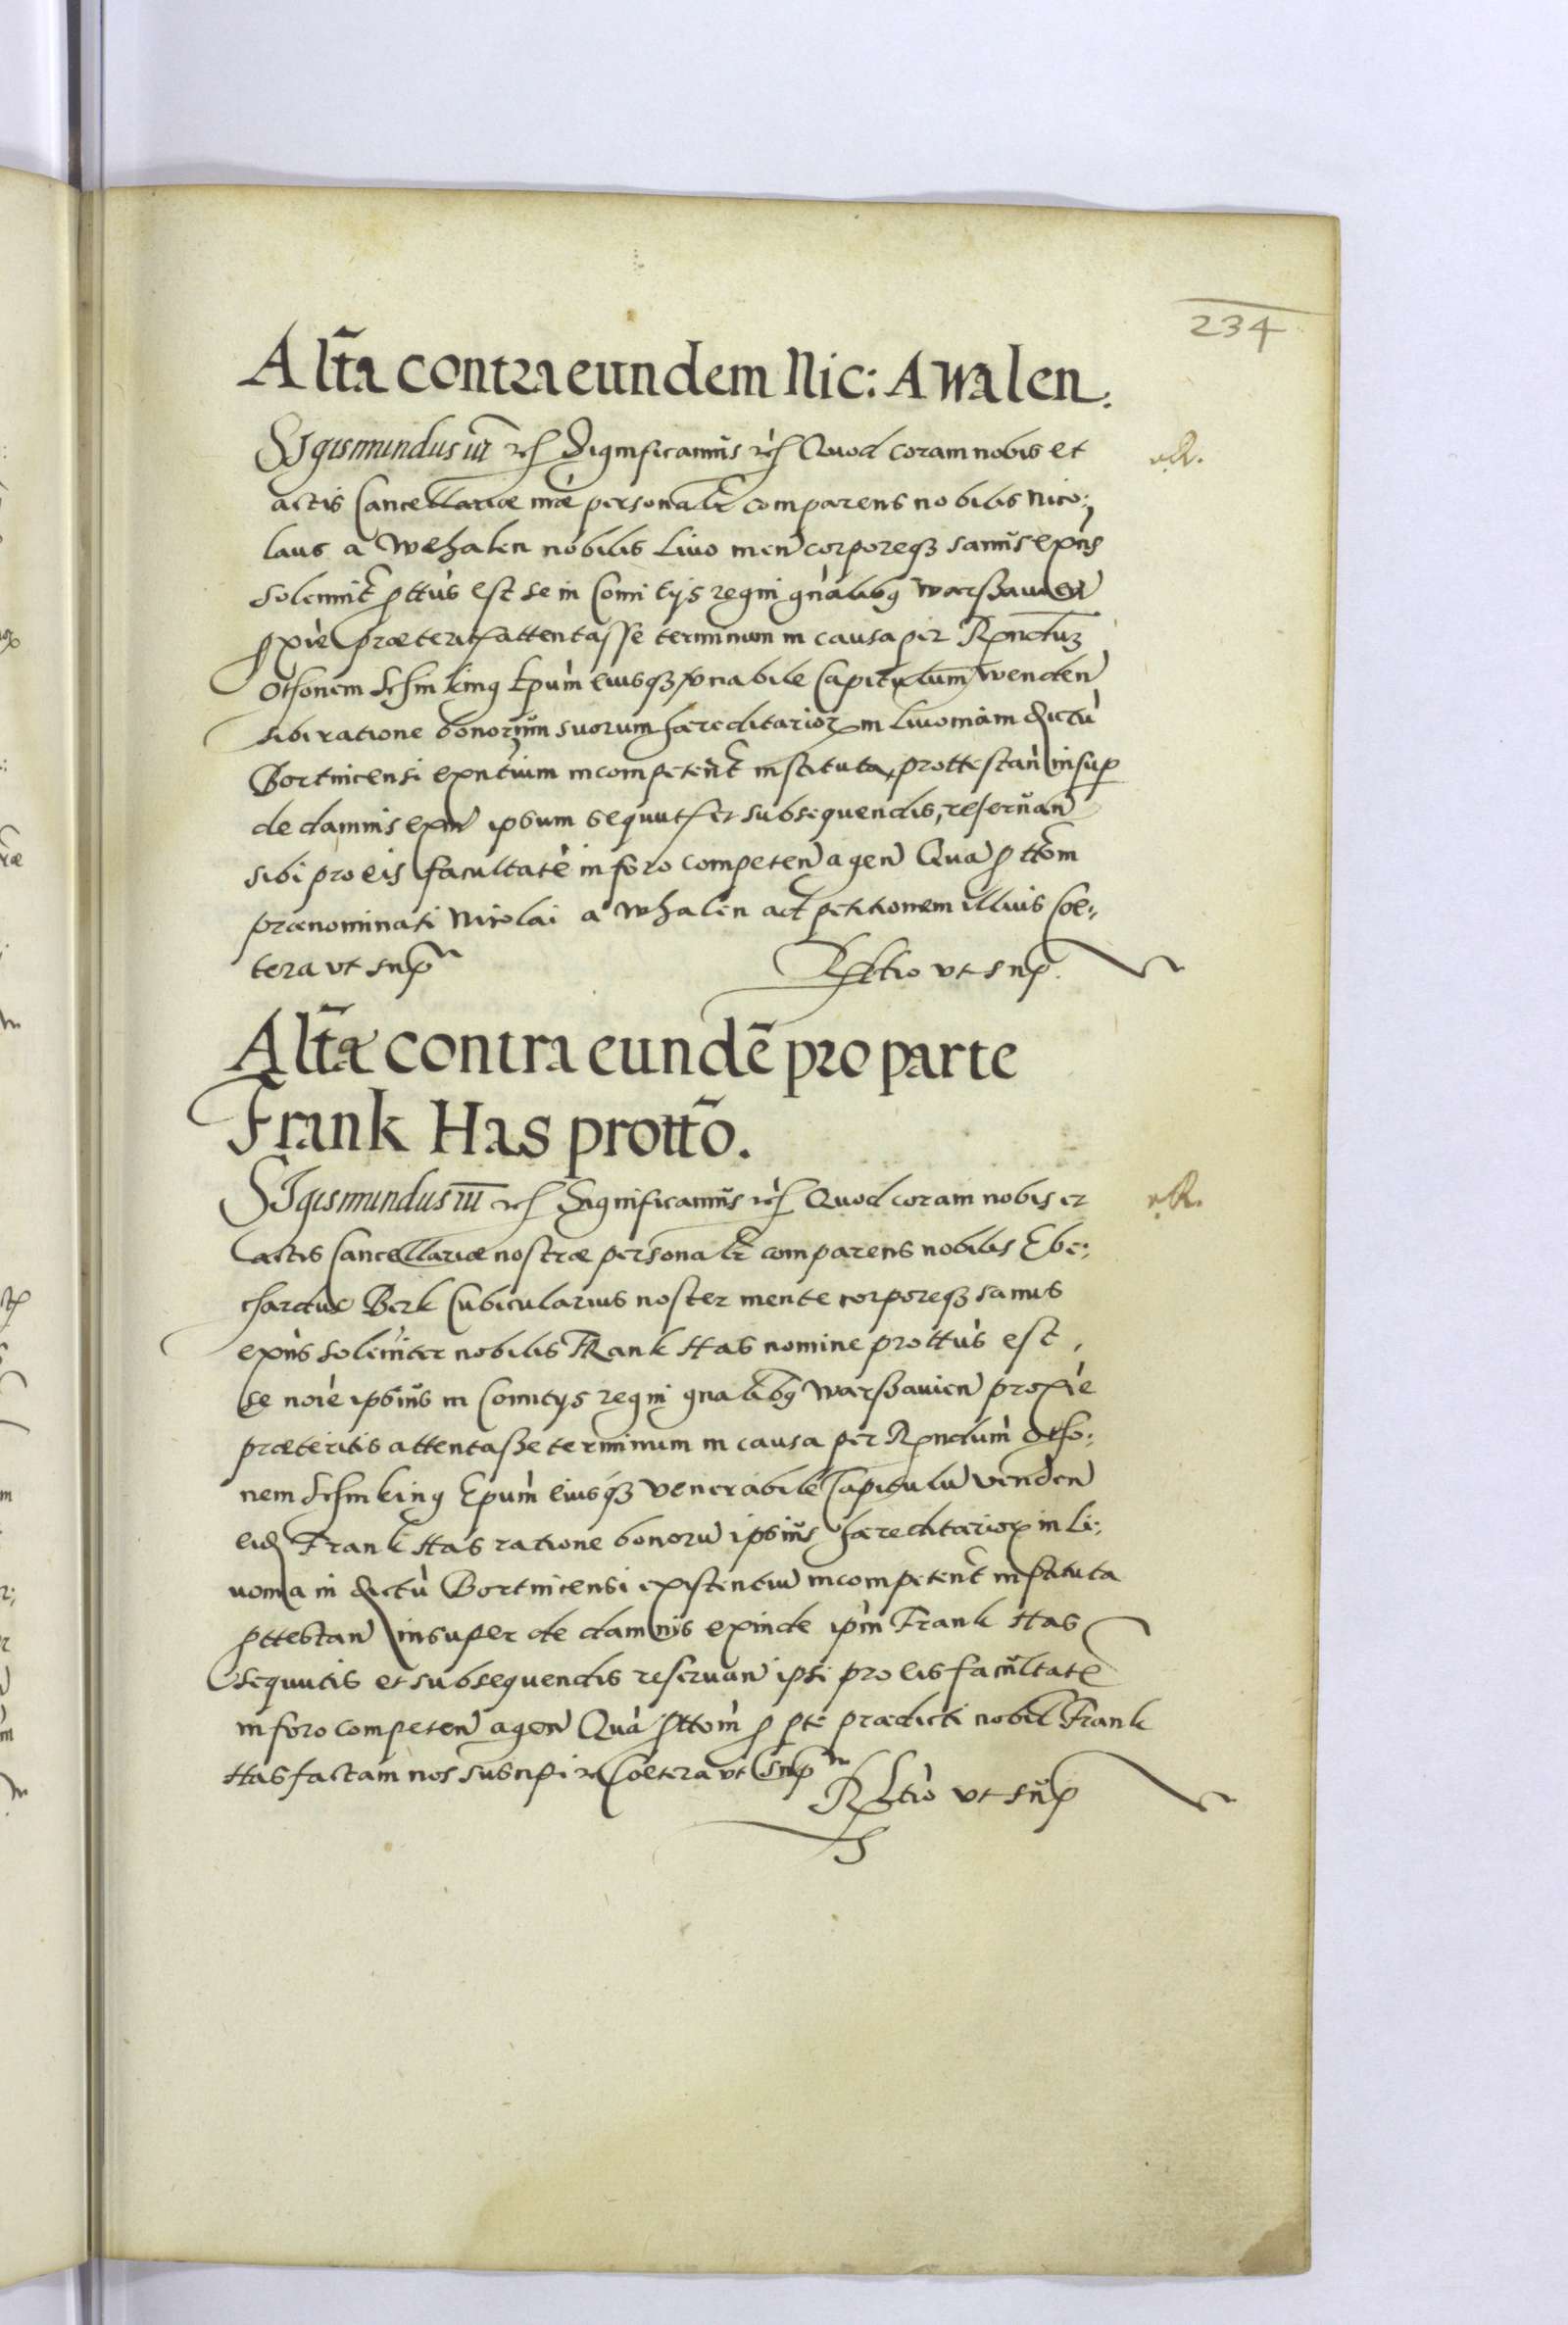 234
Alt̃a contra eundem Nic: A Walen.
SIgismundus iii etc Significamus etc Quod coram nobis et
actis Cancellariæ nr̃æ personalr̃ comparens nobilis Nico:
laus a Wehalen nobilis Livo men̄ corporeqȝ sanus exn̄s
solennit̃ ꝓttus est se in Comitijs regni gn̄alibꝰ Warssauien̄
ꝓxiẽ præterit attentasse terminum in causa per Rnđum
Othonem Schinking Epum eiusqȝ vn̄abile Capitulum Wenden̄
sibi ratione bonorum suorum hæreditarioꝝ in Livoniam dictu
Bortnicensi exn̄tium incompetent̃ instituta, prottestan̄ insuꝑ
de damnis exin̄ ipsum sequut et subsequendis, reseruan̄
sibi pro eis facultatẽ in foro competen̄ agen̄ Qua ꝓttom̃
prænominati Nicolai a Whalen ad petitionem illius Cæ:
tera vt supᵃ
Rłtio vt sup.
Alt̃a contra eundẽ pro parte
Frank Has prottõ.
SIgismundus iii etc Significamus etc Quod coram nobis et
actis Cancellariæ nostræ personalr̃ comparens nobilis Ebe:
hardus Berk Cubicularius noster mente corporeqȝ sanus
exn̄s solẽniter nobilis FRank Has nomine prottus est,
se noiẽ ipsius in Comitijs regni gnalibꝰ Warssauien̄ proxiẽ
præteritis attentasse terminum in causa per Rnđum Otho:
nem Schinking Epum eiusqȝ venerabile Capitulū Venden̄
eid Frank Has ratione bonorū ipsius hæreditarioꝝ in Li:
uonia in dictu Bortnicensi existentiū incompetent̃ instituta
ꝓttestan̄ insuper de damnis exinde ipm̄ Frank Has
sequutis et subsequendis reseruan̄ ipsi pro eis facultatẽ
in foro competen̄ agen̄ Qua ꝓttom̃ ꝓ pte prædicti nobil Frank
Has factam nos suscipi etc Cætera vt supᵃ
Rłtio vt sup